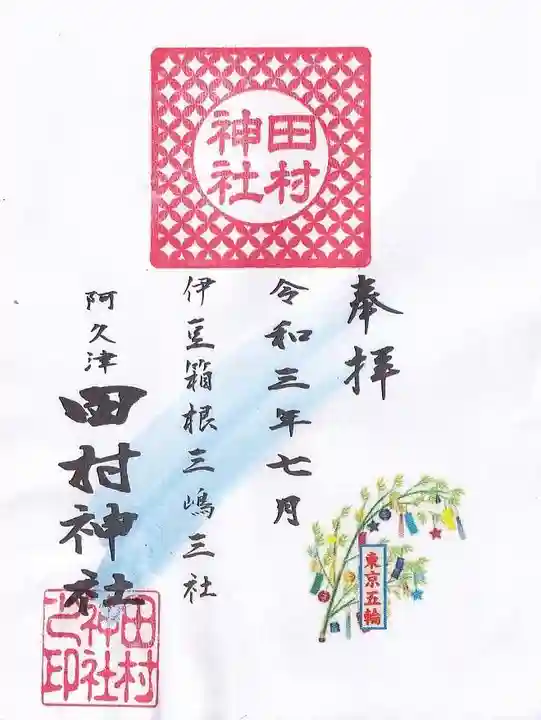 田村
神社
奉拝
令和三年七月
伊豆箱根三嶋三社
阿久津
田村神社
東京五輪
田村
神社
之印